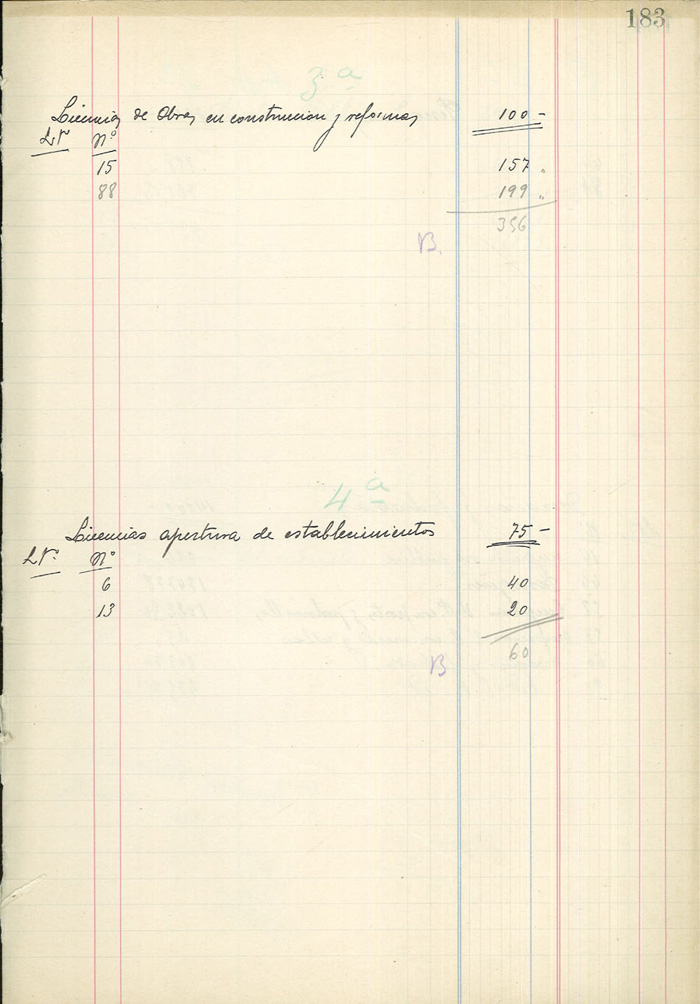 183
3ª
Licencias de Obras en construccion y reformas 100-
Lº Nº
15 157 "
88 199 "
356
B.
4ª
Licencias apertura de establecimientos 75-
Lº Nº
6 40
13 20
60
B